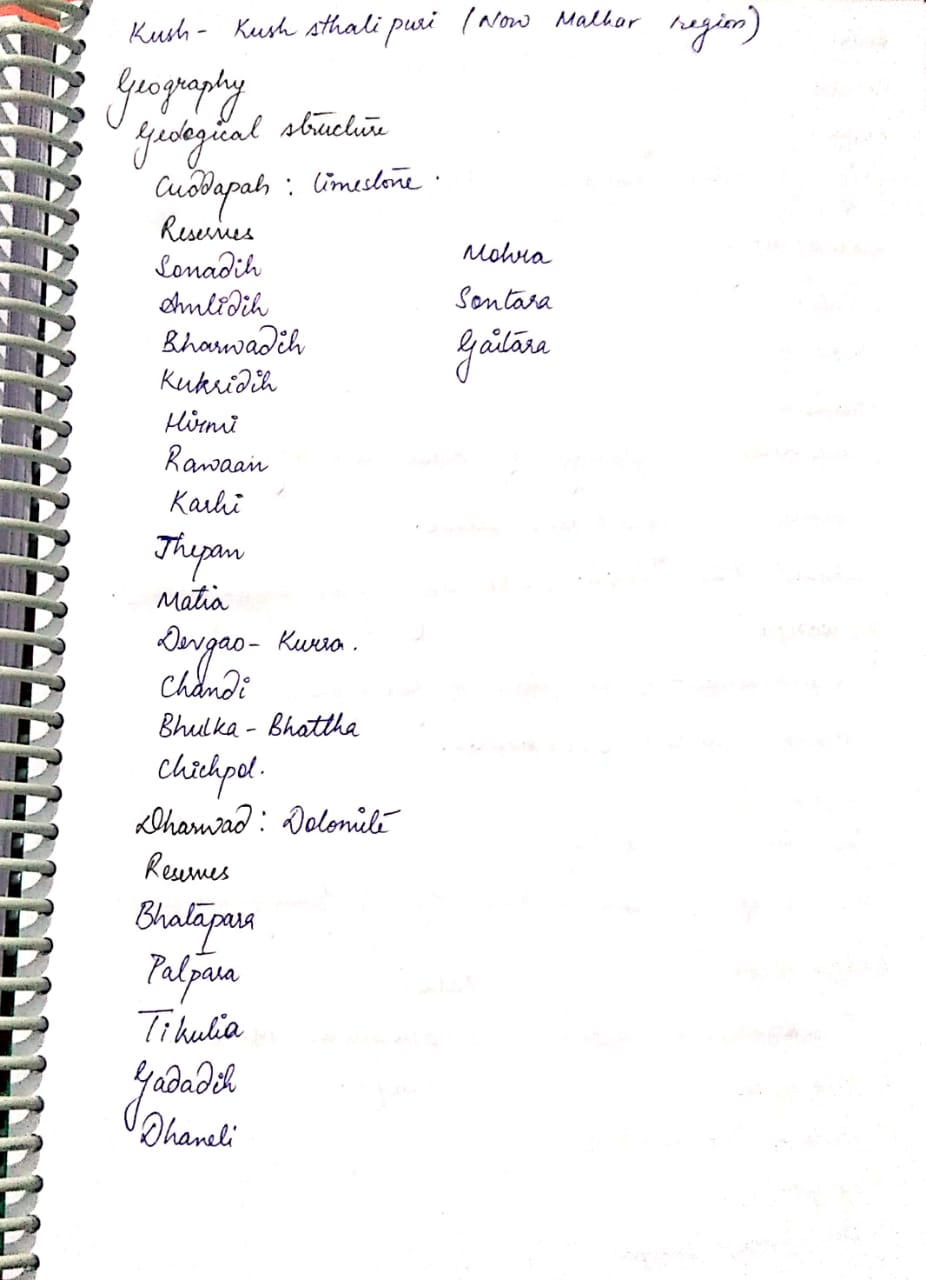 Kush - Kushsthalipuri (Now Malhar region)
Geography
Geological structure
Cuddapah : limestone .
Reserves
Sonadih
Amlidih
Bharwadih
Kukridih
Hirmi
Rawaan
Karhi
Jhepan
Matia
Devgao - Kurra .
Chandi
Bhulka - Bhattha
Chichpol .
Mohra
Sontara
Gaitara
Dharwad : Dolomite
Reserves
Bhatapara
Palpara
Tikulia
Gadadih
Dhaneli